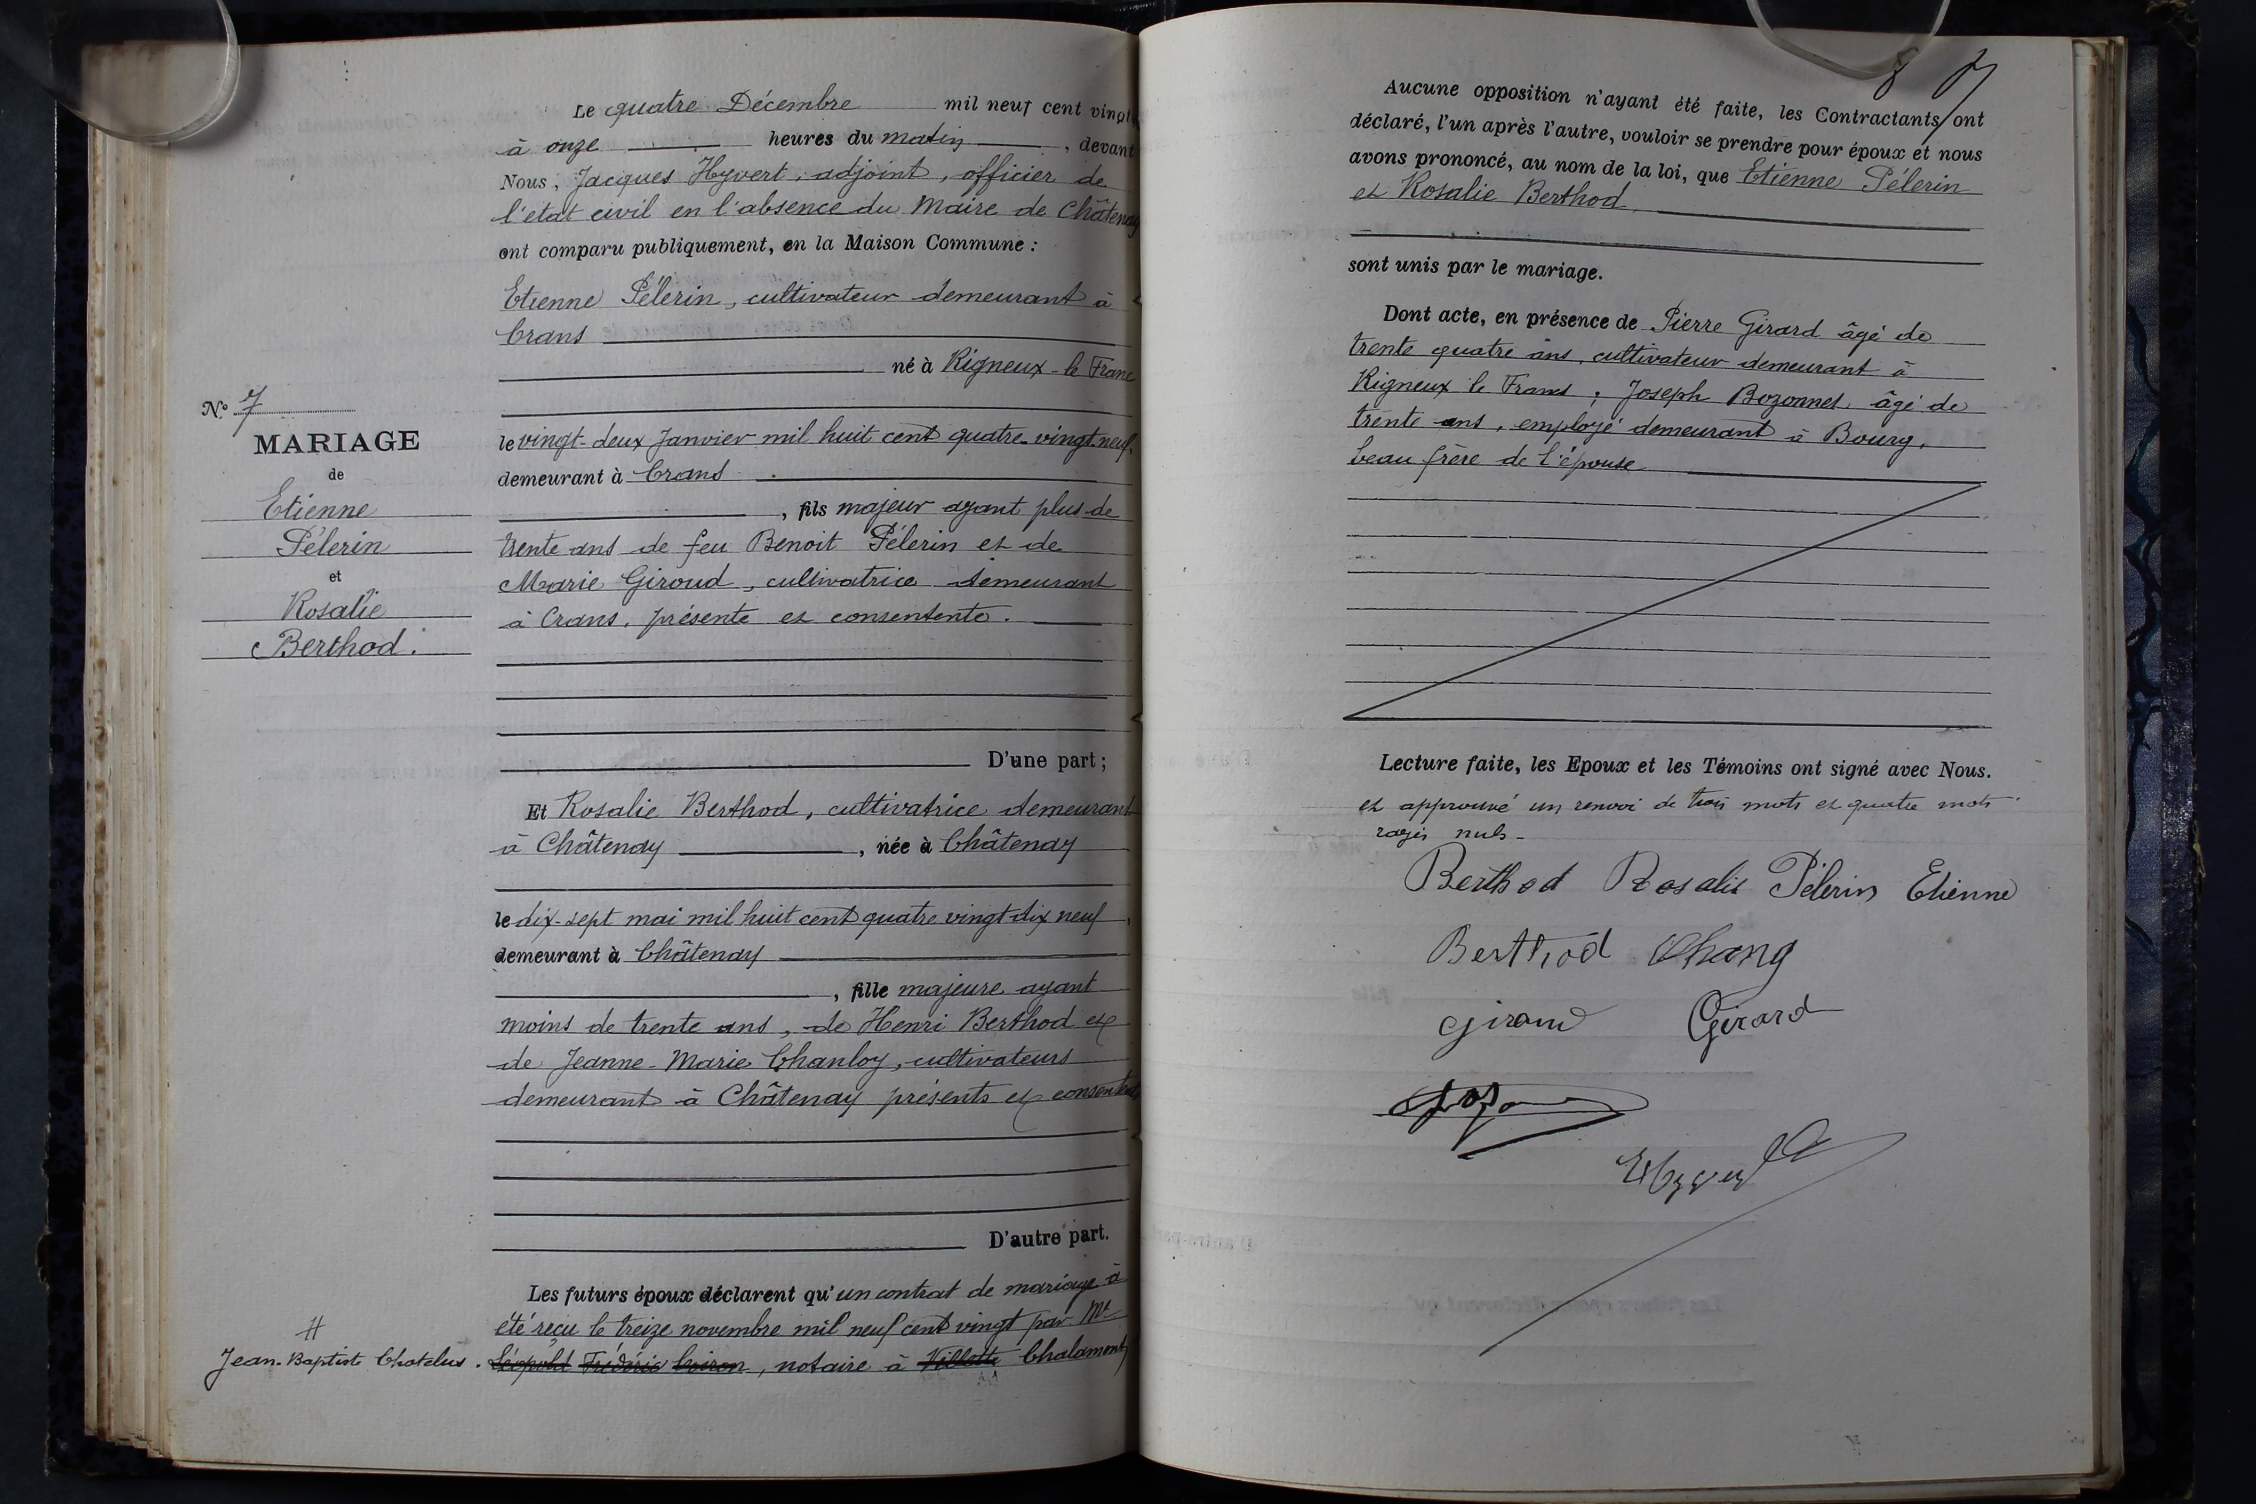 Le quatre Décembre mil neuf cent vingt
à onze heures du matin, devant
Nous, Jacques Hyvert, adjoint, officier de
l'état civil en l'absence du Maire de Châtenay
ont comparu publiquement, en la Maison Commune :
Etienne Pélerin, cultivateur demeurant à
Crans
né à Rigneux-le Franc
le vingt-deux Janvier mil huit cent quatre-vingt-neuf.
demeurant à Crans
, fils majeur ayant plus de
trente ans de feu Benoit Pélerin et de
Marie Giroud, cultivatrice demeurant
à Crans, présente et consentente.
D'une part ;
N° 7
MARIAGE
de
Etienne
Pélerin
et
Rosalie
Berthod.
Et Rosalie Berthod, cultivatrice demeurant
à Châtenay, née à Châtenay
le dix-sept mai mil huit cent quatre vingt dix neuf,
demeurant à Châtenay
, fille majeure ayant
moins de trente ans, de Henri Berthod et
de Jeanne-Marie Chanloy, cultivateurs
demeurant à Châtenay présents et consentents
D'autre part.
Les futurs époux déclarent qu'un contrat de mariage à
été reçu le treize novembre mil neuf cent vingt par Me
Léopold Frédéric Coiron, notaire à Villette Chalamont
#
Jean-Baptiste Chatelus.
Aucune opposition n'ayant été faite, les Contractants ont
déclaré, l'un après l'autre, vouloir se prendre pour époux et nous
avons prononcé, au nom de la loi, que Etienne Pélerin
et Rosalie Berthod
sont unis par le mariage.
Dont acte, en présence de Pierre Girard âgé de
trente quatre ans, cultivateur demeurant à
Rigneux le Franc ; Joseph Bozonnet âgé de
trente ans, employé demeurant à Bourg,
beau frère de l'épouse
Lecture faite, les Epoux et les Témoins ont signé avec Nous.
et approuvé un renvoi de trois mots et quatre mots
rayés nuls-
Berthod Rosalie Pélerin Etienne
Berthod Chang
Giroud Girard
Hyvert